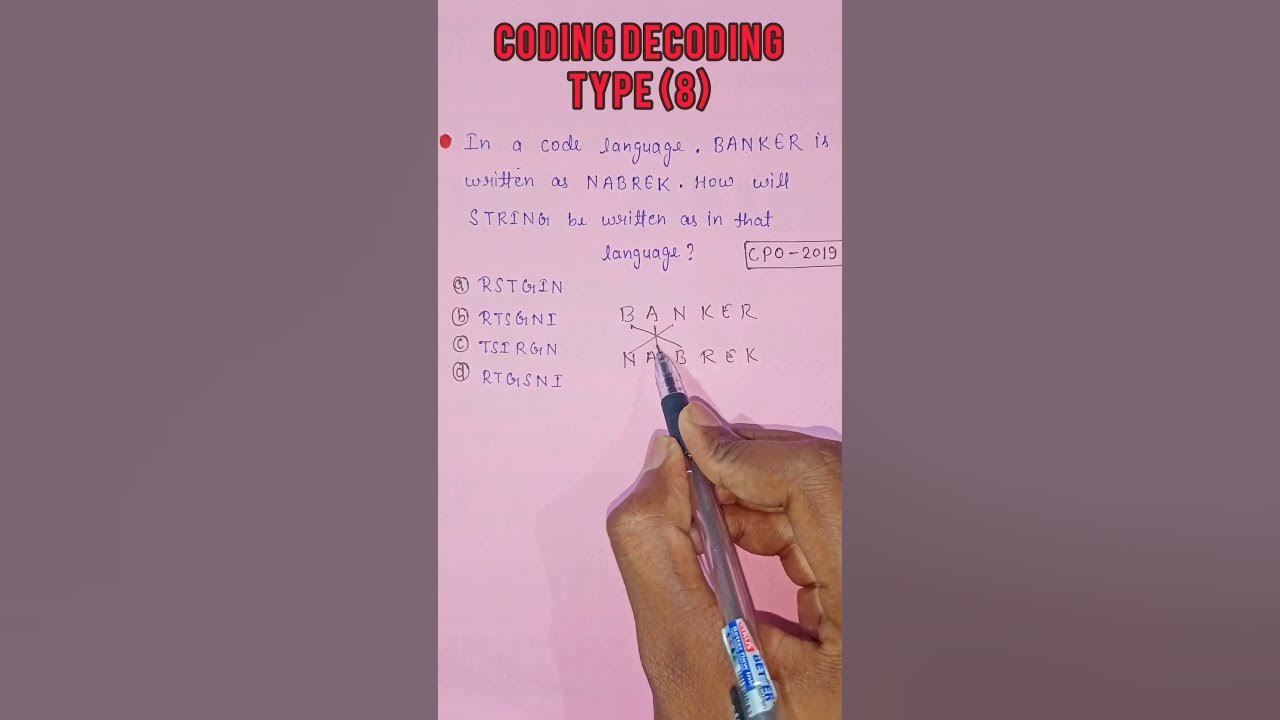 CODING DECODING
TYPE (8)
In a code language. BANKER is
written as NABREK. How will
STRING be written as in that
language?
CPO-2019
(a) RSTGIN
(b) RTSGNI
(c) TSIRGN
(d) RTGSNI
B A N K E R
N A B R E K
BETTER